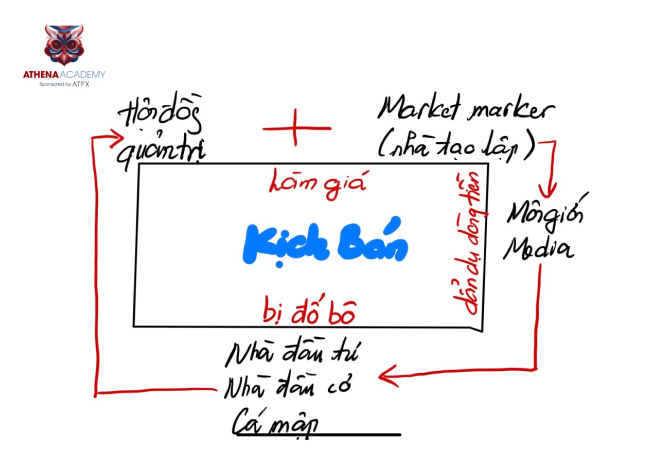 ATHENA ACADEMY
Sponsored by ATFX
Hội đồng
quản trị
+
Market marker
(nhà tạo lập)
Làm giá
Kịch Bản
dẫn dụ dòng tiền
Môi giới
Media
bị đổ bô
Nhà đầu tư
Nhà đầu cơ
Cá mập